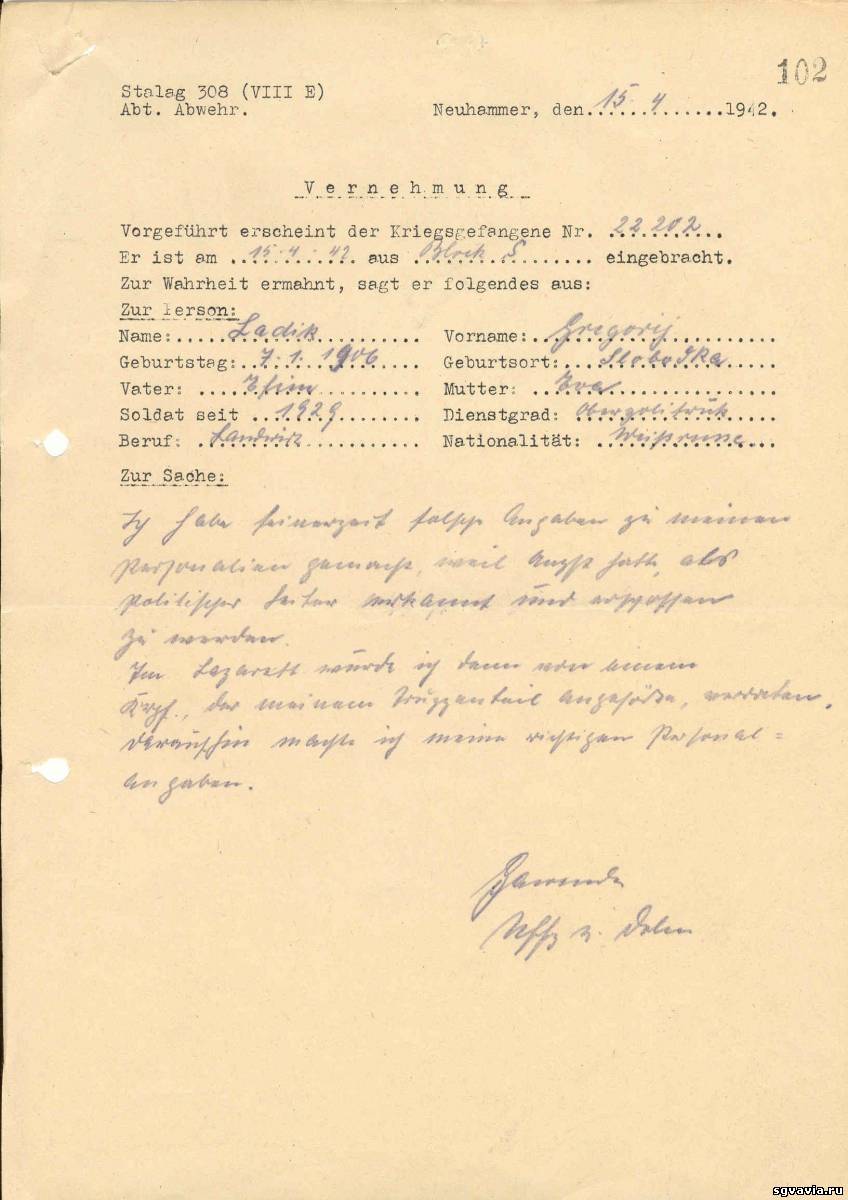 102
Stalag 308 (VIII E)
Abt. Abwehr.
Neuhammer, den 15.4.1942.
Vernehmung
Vorgeführt erscheint der Kriegsgefangene Nr. 22 202
Er ist am 15.4.42 aus Block S eingebracht.
Zur Wahrheit ermahnt, sagt er folgendes aus:
Zur Person:
Name: Ladik Vorname: Gregorij
Geburtstag: 7.1.1906 Geburtsort: Slobotka
Vater: Efim Mutter: Eva
Soldat seit 1929 Dienstgrad: Oberpolitruk
Beruf: Landwirt Nationalität: Weißrusse
Zur Sache:
Ich habe seinerzeit falsche Angaben zu meinen
Personalien gemacht, weil Angst hatte, als
politischer Leiter erkannt und erschossen
zu werden.
Im Lazarett wurde ich dann von einem
Krgf., der meinem Truppenteil angehörte, verraten.
Daraufhin machte ich meine richtigen Personal=
Angaben.
Uffz u. Dolm
sgvavia.ru